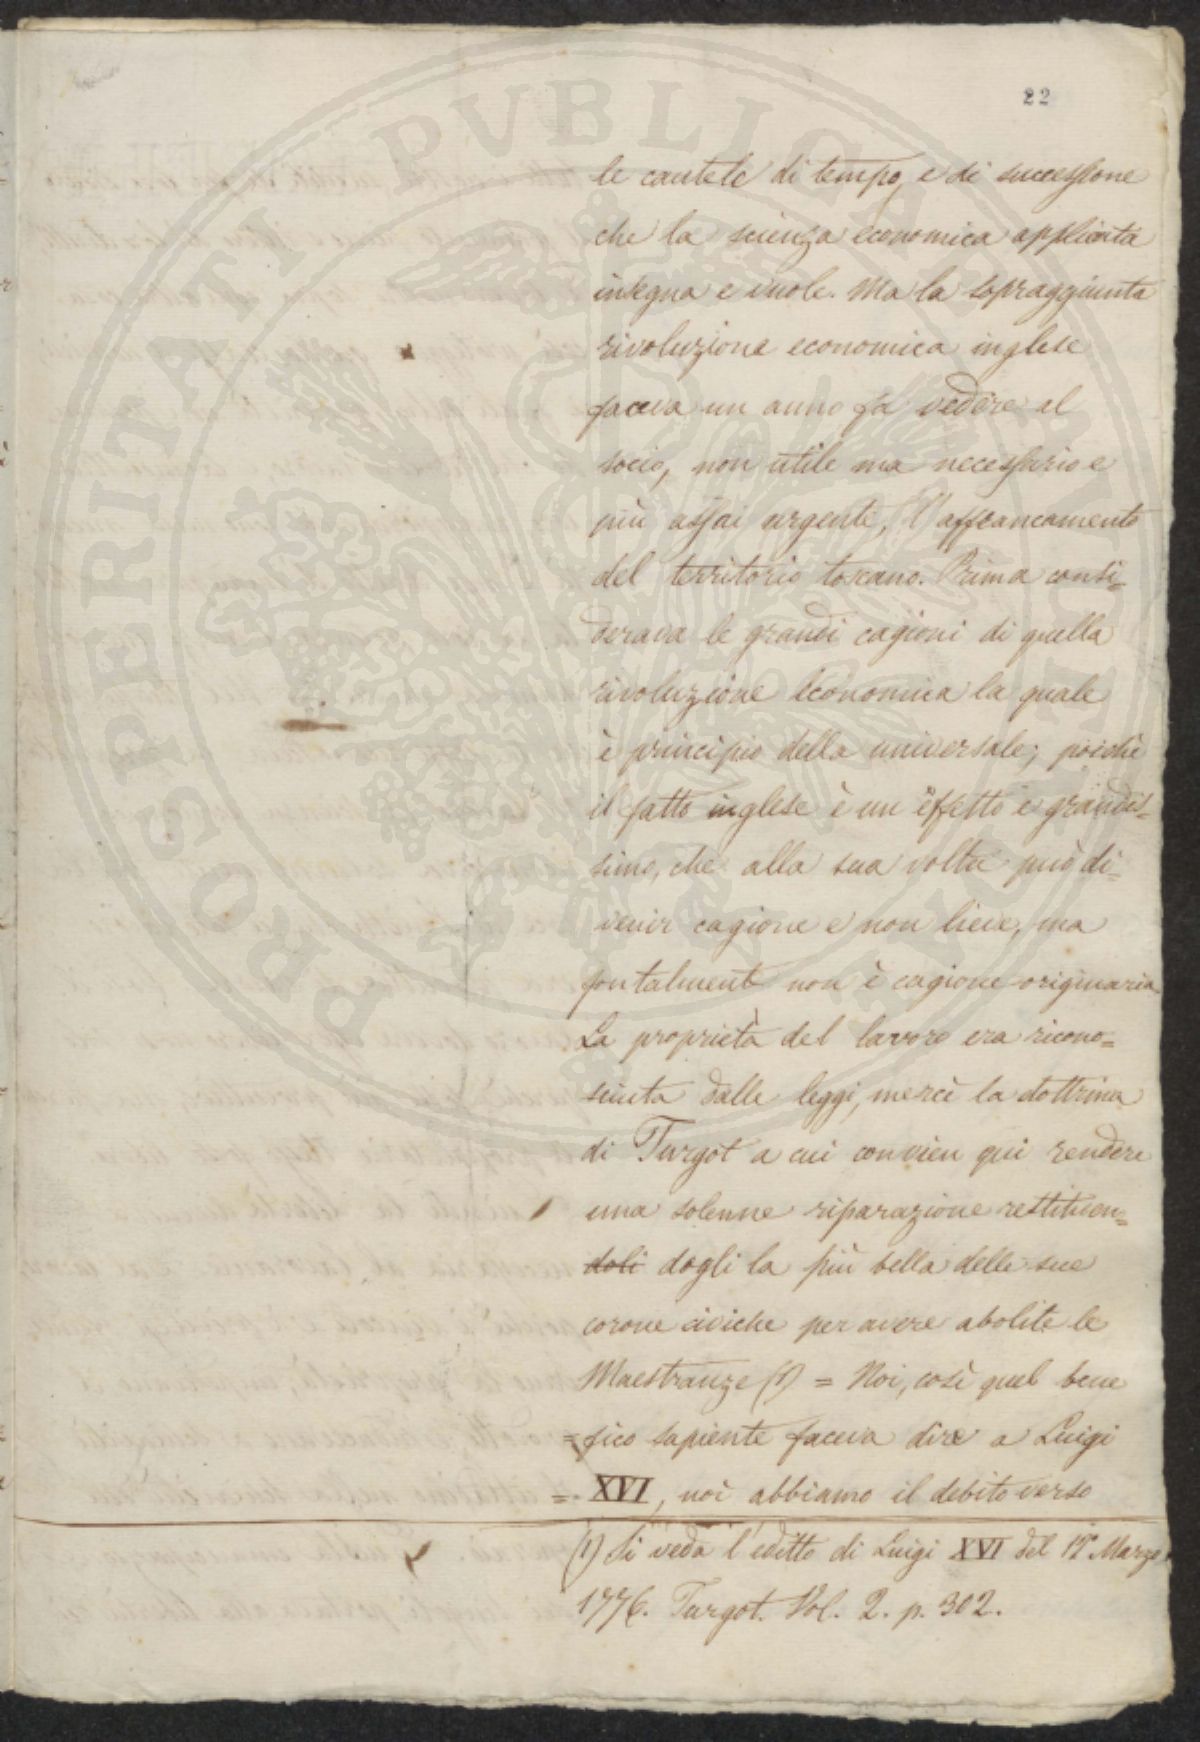 22
le cautele di tempo, e di successione
che la scienza economica applicata
insegna e vuole. Ma la sopraggiunta
rivoluzione economica inglese
faceva un anno fa vedere al
socio, non utile ma necessario e
più assai urgente, l'affrancamento
del territorio toscano. Prima consi=
derava le grandi cagioni di quella
rivoluzione economica la quale
è principio della universale; poichè
il fatto inglese è un effetto e grandis=
simo, che alla sua volta può di=
venir cagione e non lieve, ma
fontalment non è cagione originaria
La proprietà del lavoro era ricono=
sciuta dalle leggi, mercè la dottrina
di Turgot a cui convien qui rendere
una solenne riparazione restituen=
doli dogli la più bella delle sue
corone civiche per avere abolite le
Maestranze (1) = Noi, così quel bene
=fico sapiente faceva dire a Luigi
=XVI, noi abbiamo il debito verso
(1) Si veda l'editto di Luigi XVI del 12 Marzo
1776. Turgot. Vol. 2. p. 302.
PROSPERITATI PVBLICAE